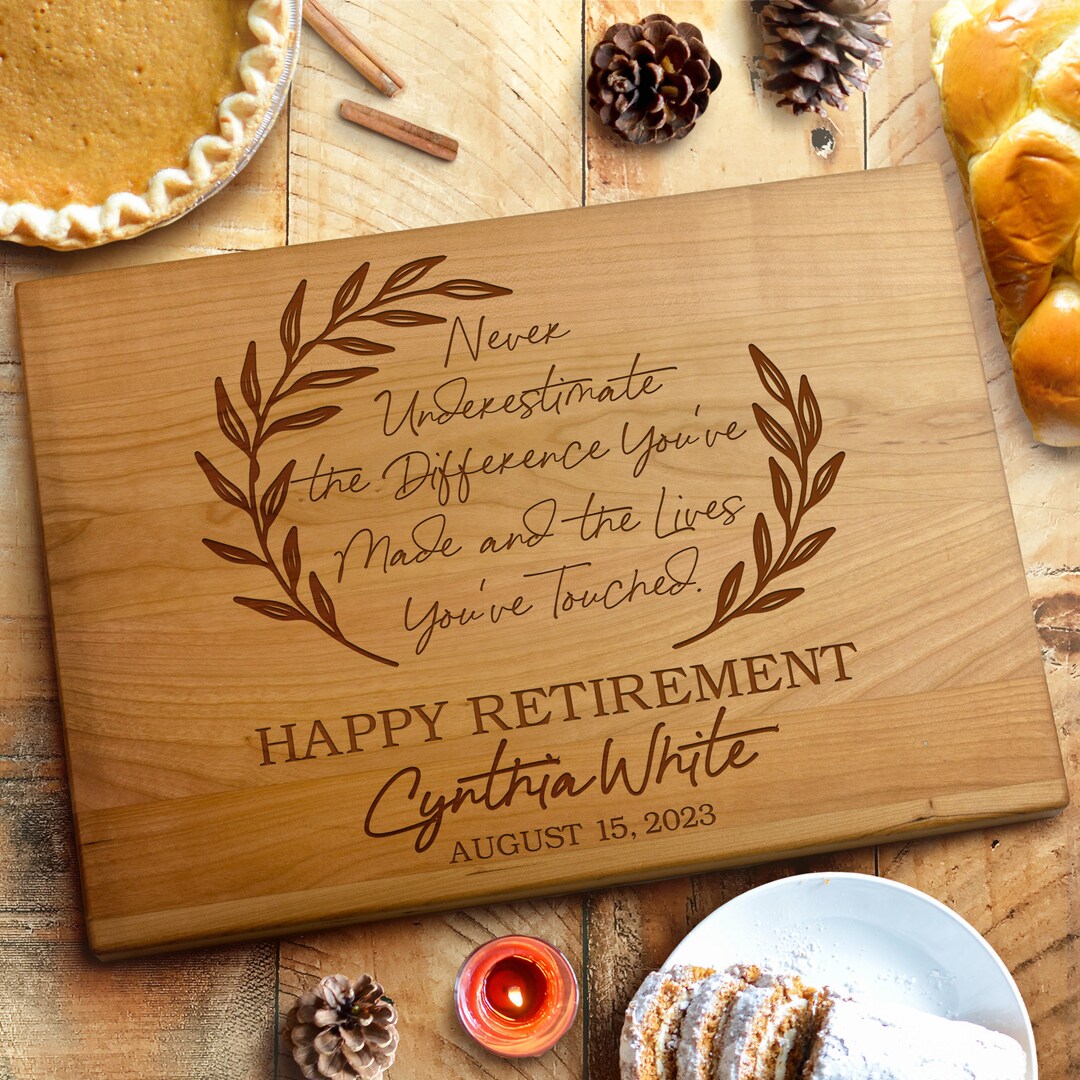 Never
Underestimate
the Difference You've
Made and the Lives
You've Touched.
HAPPY RETIREMENT
Cynthia White
AUGUST 15, 2023